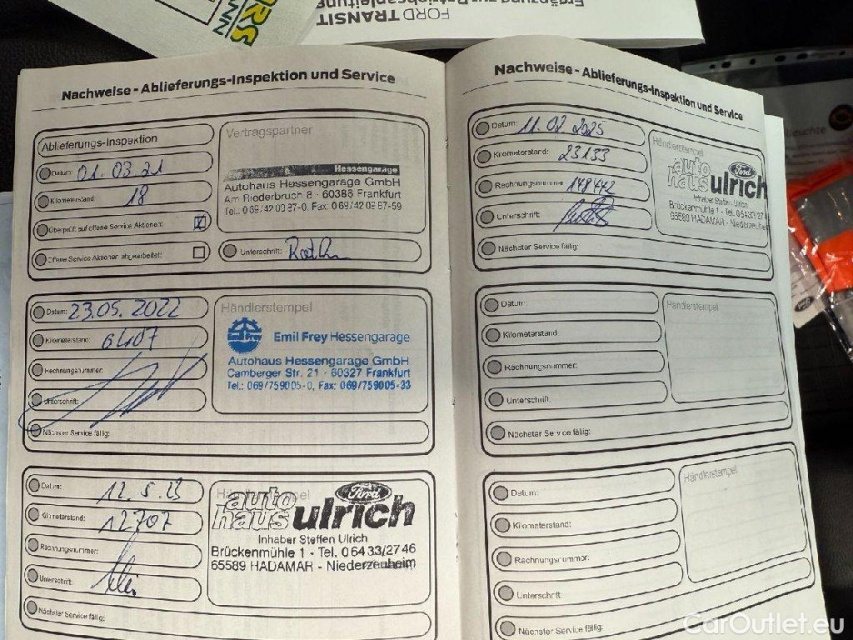 FORD TRANSIT
Nachweise - Ablieferungs-Inspektion und Service
Ablieferungs-Inspektion
Datum: 01.03.21
Kilometerstand: 18
Überprüft auf offene Service Aktionen:
Offene Service Aktionen abgearbeitet:
Vertragspartner
Hessengarage
Autohaus Hessengarage GmbH
Am Riederbruch 8 - 60386 Frankfurt
Unterschrift:
Datum: 23.05.2022
Kilometerstand: 6407
Rechnungsnummer:
Unterschrift:
Nächster Service fällig:
Händlerstempel
Emil Frey Hessengarage
Autohaus Hessengarage GmbH
Camberger Str. 21 - 60327 Frankfurt
Tel.: 069/759005-0, Fax: 069/759005-33
Datum: 12.5.23
Kilometerstand: 12707
Rechnungsnummer:
Unterschrift:
Nächster Service fällig:
auto haus ulrich
Ford
Inhaber Steffen Ulrich
Brückenmühle 1 - Tel. 06433/2746
65589 HADAMAR - Niederzeuheim
Nachweise - Ablieferungs-Inspektion und Service
Datum: 11.02.2025
Kilometerstand: 23133
Rechnungsnummer: 148442
Unterschrift:
Nächster Service fällig:
Händlerstempel
auto haus ulrich
Ford
Inhaber Steffen Ulrich
Brückenmühle 1 - Tel. 06433/274
65589 HADAMAR - Niederzeuheim
Datum:
Kilometerstand:
Rechnungsnummer:
Unterschrift:
Nächster Service fällig:
Händlerstempel
Datum:
Kilometerstand:
Rechnungsnummer:
Unterschrift:
Nächster Service fällig:
Händlerstempel
CarOutlet.eu